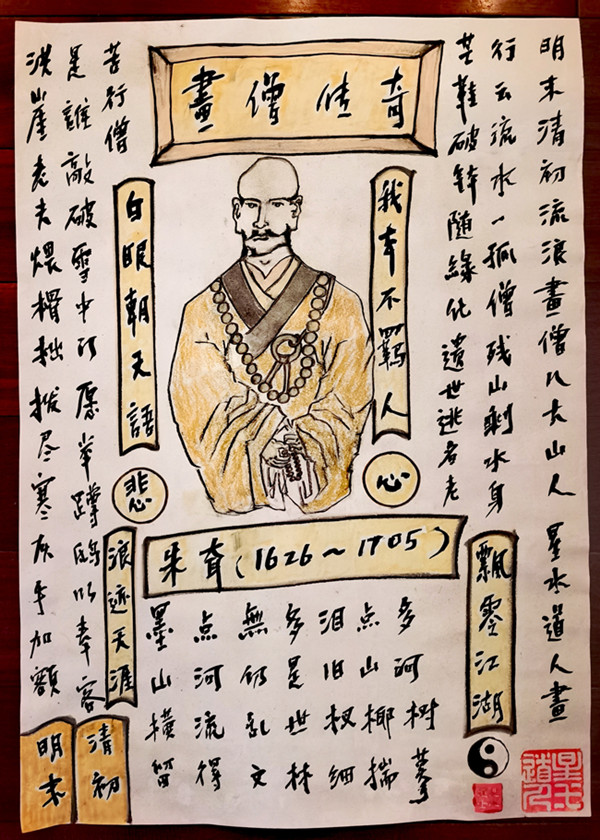 畫僧传奇
明末清初流浪畫僧八大山人 星水道人畫
行云流水一孤僧残山剩水身
芒鞋破鉢随緣化遺世逃名老
我本不羈人
白眼朝天語
心
悲
苦行僧
是誰敲破雪中门愿举蹲鸱以奉客
洪崖老夫煨榾柮拨尽寒灰手加额
朱耷(1626~1705)
飄零江湖
浪迹天涯
墨点無多泪点多
山河仍是旧山河
橫流乱世杈椰树
留得文林细揣摹
清初
明末
星水道人